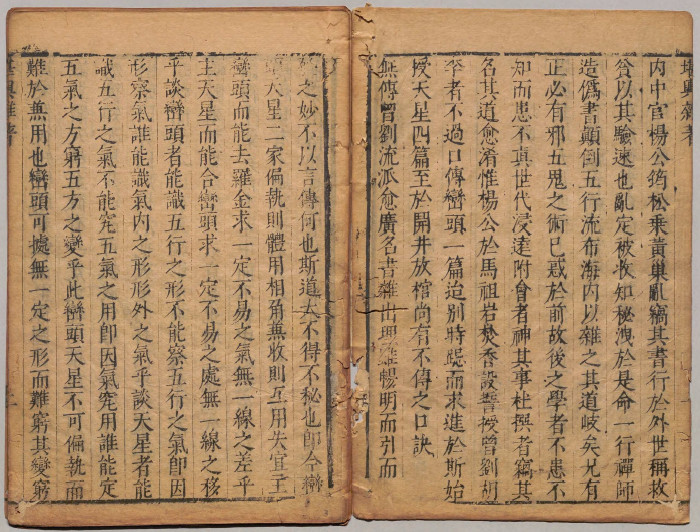 堪輿雜著
內中官楊公筠松乘黃巢亂竊其書行於外世稱救
貧以其驗速也亂定被收知秘洩於是命一行禪師
造僞書顛倒五行流布海內以雜之其道岐矣凡有
正必有邪五鬼之術已裁於前故後之學者不患不
知而患不真世代浸遠附會者神其事杜撰者竊其
名其道愈淆惟楊公於馬祖岩焚香設誓授曾劉胡
卒者不過口傳巒頭一篇迨別時跽而求進於斯始
授天星四篇至於開井放棺尚有不傳之口訣
無傳曾劉流派愈廣名書雜出興雖暢明而引而
發之妙不以言傳何也斯道大不得不秘也即今巒
頭天星二家偏執則體用相角兼收則互用失宜主
巒頭而能去羅金求一定不易之氣無一線之差乎
主天星而能合巒頭求一定不易之處無一線之移
乎談巒頭者能識五行之形不能察五行之氣即因
形察氣誰能識氣內之形形外之氣乎談天星者能
識五行之氣不能究五氣之用即因氣究用誰能定
五氣之方窮五方之變乎此巒頭天星不可偏執而
難於兼用也巒頭可據無一定之形而難窮其變窮
堪輿雜著